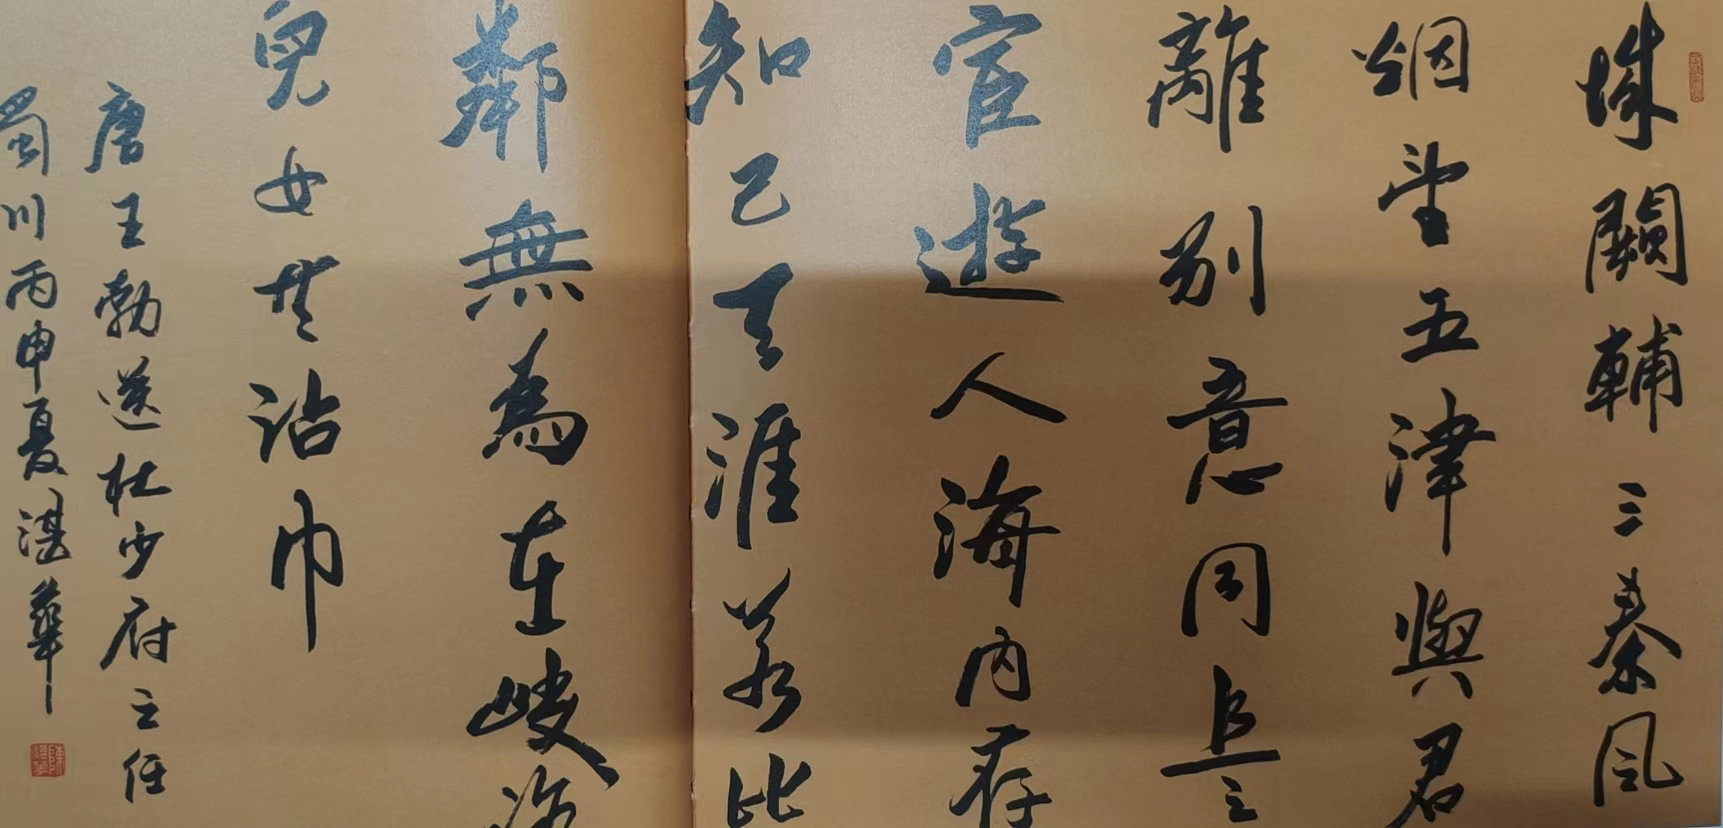 城闕輔三秦風
烟望五津與君
離別意同是
宦遊人海內存
知己天涯若比
鄰無為在岐路
兒女共沾巾
唐王勃送杜少府之任
蜀川丙申夏湛華